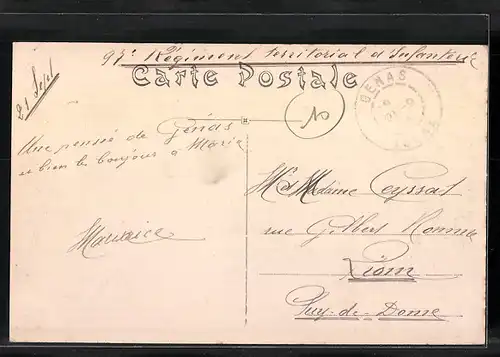 97e Régiment territorial d'Infanterie
Carte Postale
GENAS
21 Sept
Une pensée de Genas
et bien le bonjour à Marie
Maurice
Mr et Madame Ceyssat
rue Gilbert Romme
Riom
Puy-de-Dome